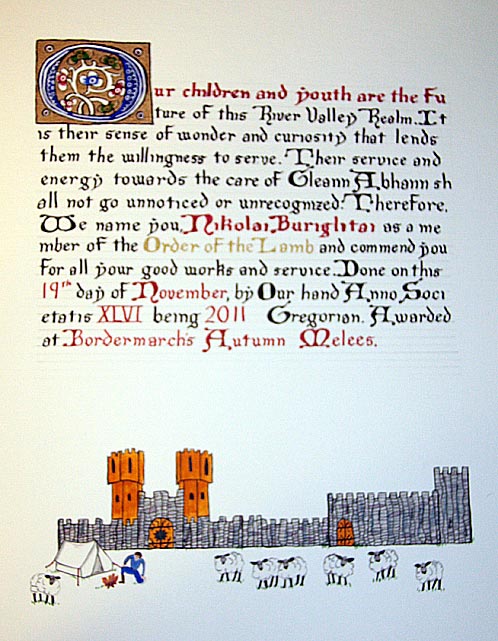 Our children and youth are the Fu
ture of this River Valley Realm. It
is their sense of wonder and curiosity that lends
them the willingness to serve. Their service and
energy towards the care of Gleann Abhann sh
all not go unnoticed or unrecognized. Therefore,
We name you, Nikolai Burightai as a me
mber of the Order of the Lamb and commend you
For all your good works and service. Done on this
19th day of November, by Our hand Anno Soci
etatis XLVI being 2011 Gregorian. Awarded
at Bordermarch's Autumn Melees.